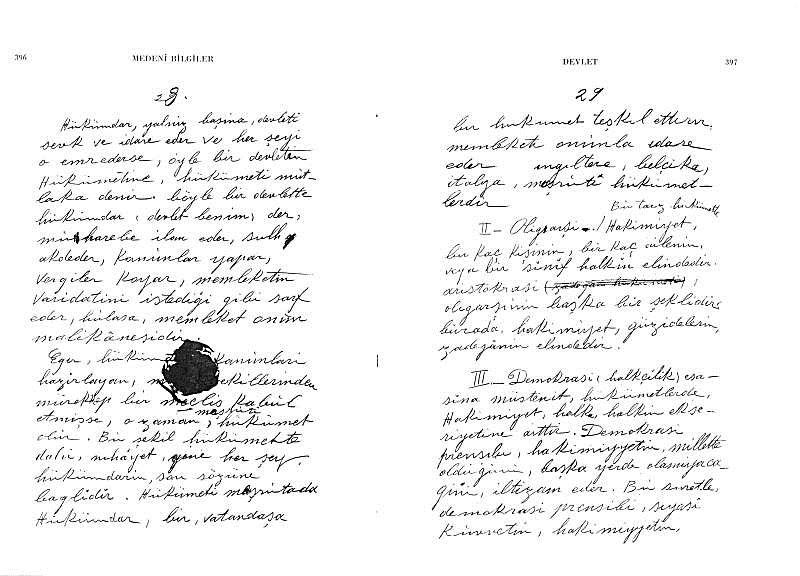 396
MEDENİ BİLGİLER
28.
Hükümdar, yalnız başına, devleti
sevk ve idare eder ve her şeyi
o emrederse, öyle bir devletin
Hükümetine, hükümeti mut-
laka denir. böyle bir devlette
hükümdar, devlet benim, der,
muharebe ilan eder, sulh
akdeder, kanunlar yapar,
vergiler koyar, memleketin
varidatini istediği gibi sarf
eder, hulasa, memleket onun
malikânesidir.
Eger, kanunları
hazırlayan,
mürekkep bir meclis kabul
etmişse, o zaman, meşruti hükümet
olur. Bu şekil hükümette
dahi, nihayet, gene her şey,
hükümdarın, son sözüne
baglidir. Hükümeti meşrutada
Hükümdar, bir, vatandaşa
DEVLET
397
29
bir hükümet teşkil ettirir,
memleketi onunla idare
eder ingiltere, belçika,
italya, meşruti hükümet-
lerdir
Bir tarz hükümette
II- Oligarşi - Hakimiyet,
bir kaç kişinin, bir kaç ailenin,
veya bir sınıf halkin elindedir.
aristokrasi,
oligarşinin başka bir şeklidir
burada, hakimiyet, güzidelerin,
zadegânin elindedir.
III - Demokrasi (halkçilik) esa-
sina müstenit, hükümetlerde,
Hakimiyet, halka, halkın ekse-
riyetine aittir. Demokrasi
prensibi, hakimiyyetin, millette
olduğunu, başka yerde olamıyaca
ğini, iltizam eder. Bu suretle,
demokrasi prensibi, siyasi
kuvvetin, hakimiyyetin,